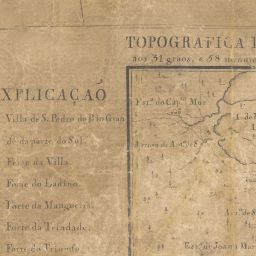 TOPOGRAFICA
aos 31 graos, e 58 minu
XPLICAÇAÕ
Villa de S. Pedro do Rio Gran
de da parte do Sul.
Forte da Villa.
Forte do Ladino.
Forte da Mangueira.
Forte da Trindade.
Forte do Triunfo.
Est.ª do Cap.m Mór
Arroyo de Ant.º de S.
I. de
Est.ª de Joam